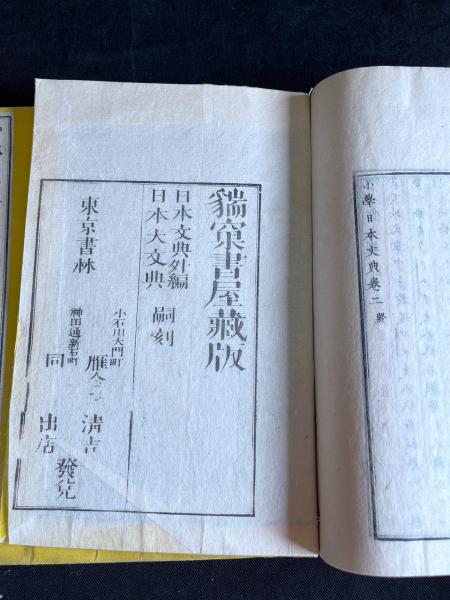 小學日本文典卷二 終
貒窠書屋藏版
日本文典外編
日本大文典 嗣刻
東京書林
小石川大門町 雁 清吉
神田通新石町 同 出店
發兌